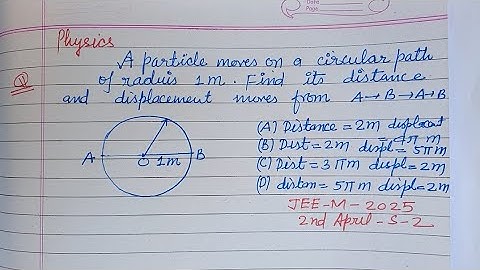 Date
Page
Physics
Q1
A particle moves on a circular path
of raduis 1m. Find its distance
and displacement moves from A→B→A→B
A
O
1m
B
(A) Distance = 2m displacent = 4π m
(B) Dist = 2m displ = 5π m
(C) Dist = 3πm displ = 2m
(D) distan = 5πm displ = 2m
JEE-M-2025
2nd April-S-2